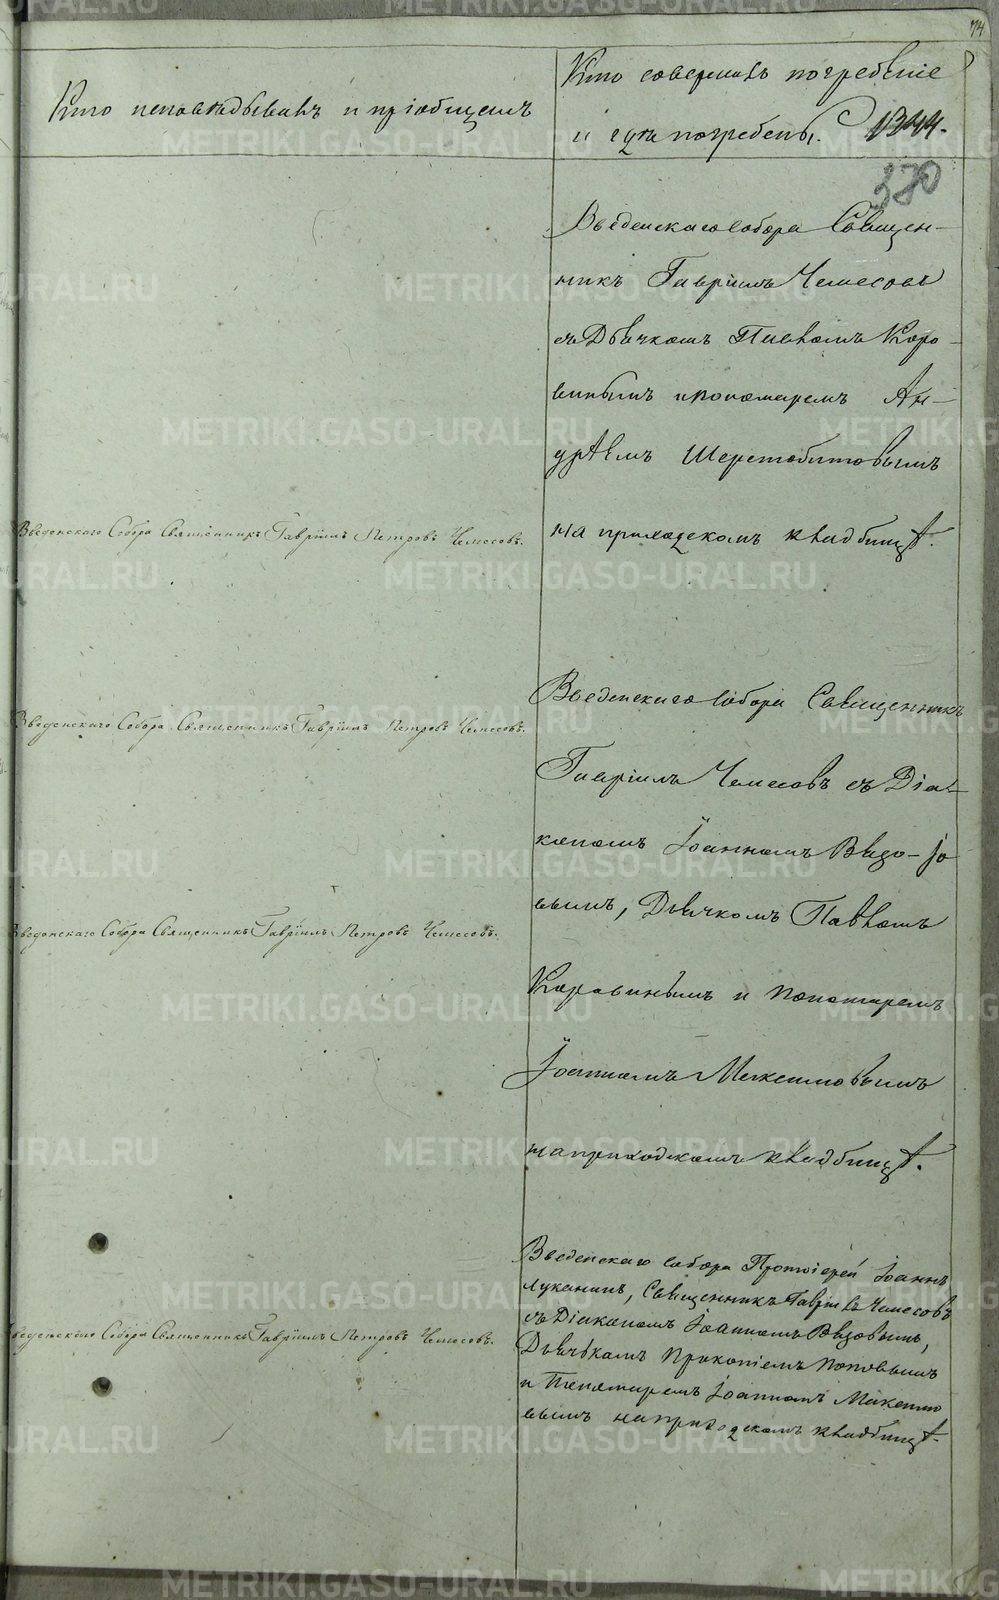 74
Кто исповѣдывалъ и пріобщалъ
Кто совершалъ погребеніе
и гдѣ погребены.
1344.
370
Введенскаго Собора Священ-
никъ Гавріилъ Чемесовъ
съ Дьячкомъ Павломъ Коро-
винымъ и Пономаремъ Ан-
дрѣемъ Шерстобитовымъ
на приходскомъ кладбищѣ.
Введенскаго Собора Священникъ Гавріилъ Петровъ Чемесовъ.
Введенскаго Собора Священникъ
Гавріилъ Чемесовъ съ Діа-
кономъ Іоанномъ Видо-
вымъ, Дьячкомъ Павломъ
Коровинымъ и Пономаремъ
Іоанномъ Максимовымъ
на приходскомъ кладбищѣ.
Введенскаго Собора Священникъ Гавріилъ Петровъ Чемесовъ.
Введенскаго Собора Священникъ Гавріилъ Петровъ Чемесовъ.
Введенскаго собора Протоіерей Іоаннъ
Луканинъ, Священникъ Гавріилъ Чемесовъ
съ Діакономъ Іоанномъ
Дьячкомъ Прокопіемъ Поповымъ
и Пономаремъ Іоанномъ Максимо
вымъ на приходскомъ кладбищѣ.
Введенскаго Собора Священникъ Гавріилъ Петровъ Чемесовъ.
METRIKI.GASO-URAL.RU